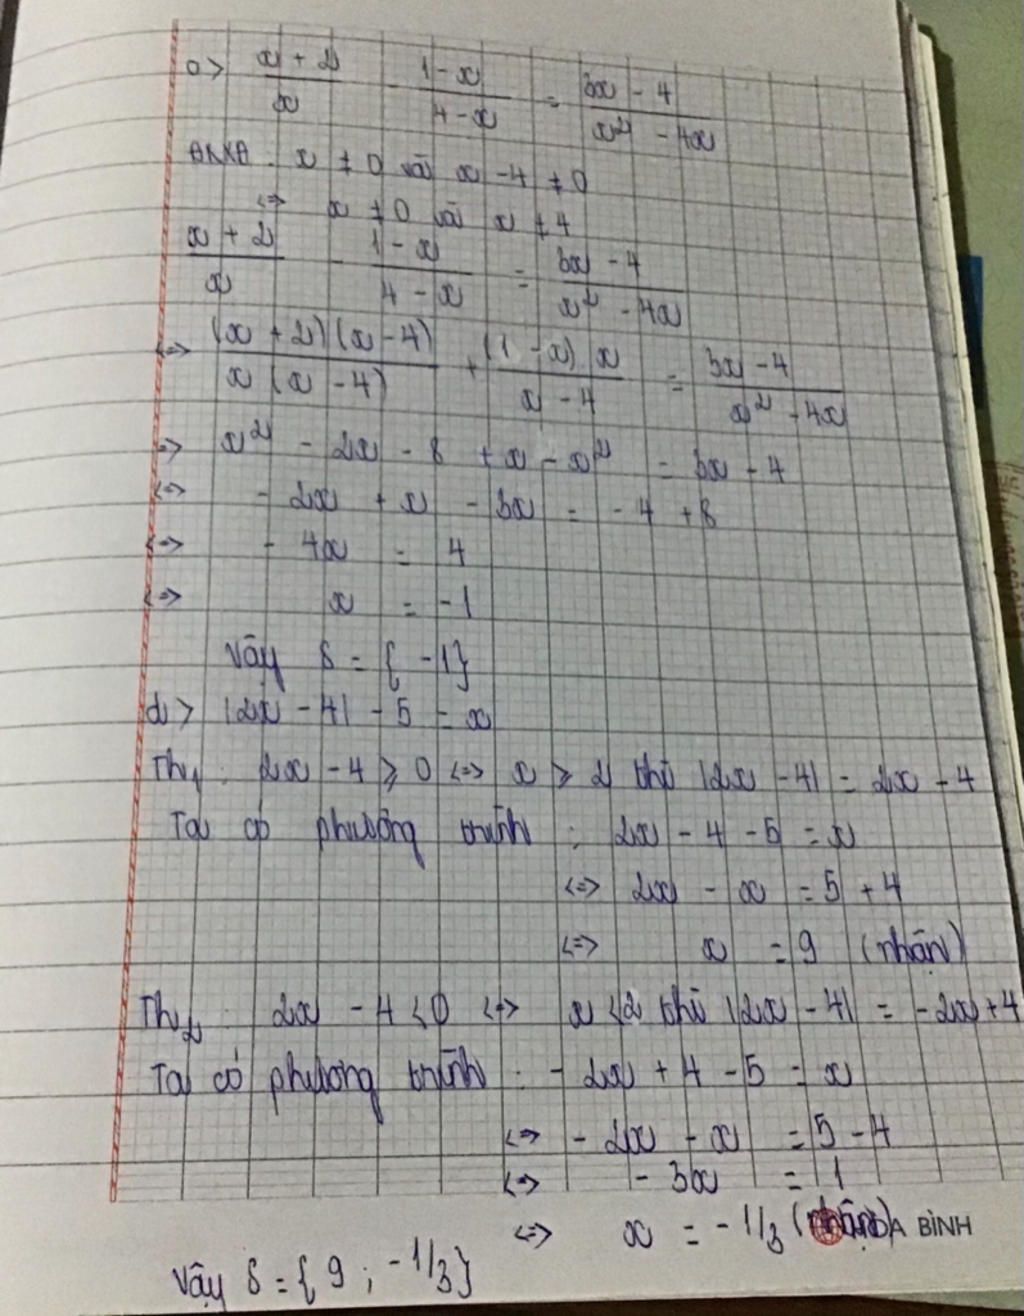 c> (x + 2)/x - (1 - x)/(4 - x) = (3x - 4)/(x² - 4x)
ĐKXĐ: x ≠ 0 và x - 4 ≠ 0
<=> x ≠ 0 và x ≠ 4
(x + 2)/x - (1 - x)/(4 - x) = (3x - 4)/(x² - 4x)
<=> (x + 2)(x - 4)/x(x - 4) + (1 - x).x/x - 4 = (3x - 4)/(x² - 4x)
=> x² - 2x - 8 + x - x² = 3x - 4
<=> - 2x + x - 3x = - 4 + 8
<=> - 4x = 4
<=> x = -1
Vậy S = { -1}
d> |2x - 4| - 5 = x
Th₁: 2x - 4 ≥ 0 <=> x ≥ 2 thì |2x - 4| = 2x - 4
Ta có phương trình: 2x - 4 - 5 = x
<=> 2x - x = 5 + 4
<=> x = 9 (nhận)
Th₂: 2x - 4 < 0 <=> x < 2 thì |2x - 4| = -2x + 4
Ta có phương trình: - 2x + 4 - 5 = x
<=> - 2x - x = 5 - 4
<=> - 3x = 1
<=> x = - 1/3 (nhận) A BÌNH
Vậy S = { 9 ; -1/3}